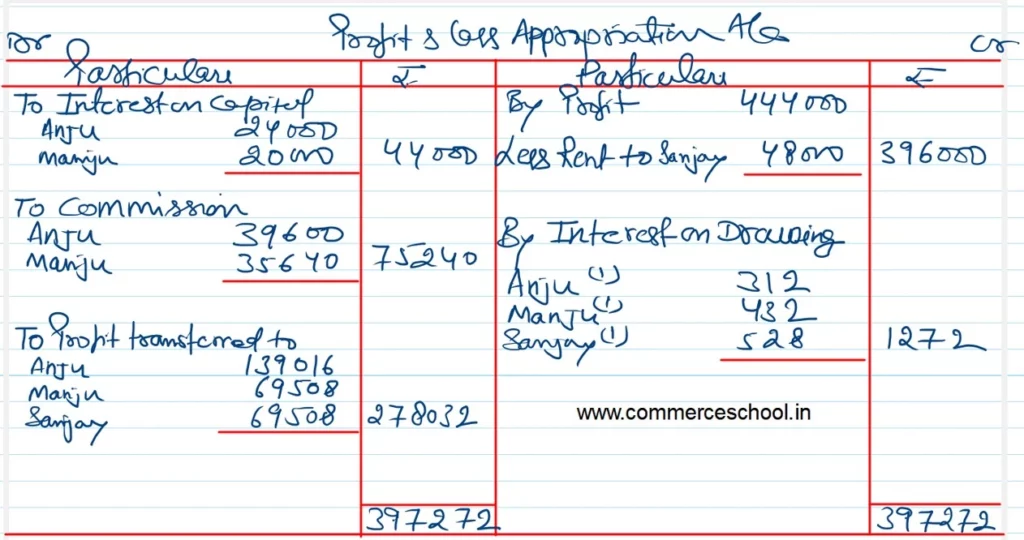 Profit & Loss Appropriation A/c
Dr Cr
Particulars ₹ Particulars ₹
To Interest on Capital By Profit 444000
Anju 24000
Manju 20000 44000 Less Rent to Sanjay 48000 396000
To Commission
Anju 39600 By Interest on Drawing
Manju 35640 75240
Anju (1) 312
Manju (1) 432
To Profit transferred to Sanjay (1) 528 1272
Anju 139016
Manju 69508
Sanjay 69508 278032 www.commerceschool.in
397272 397272